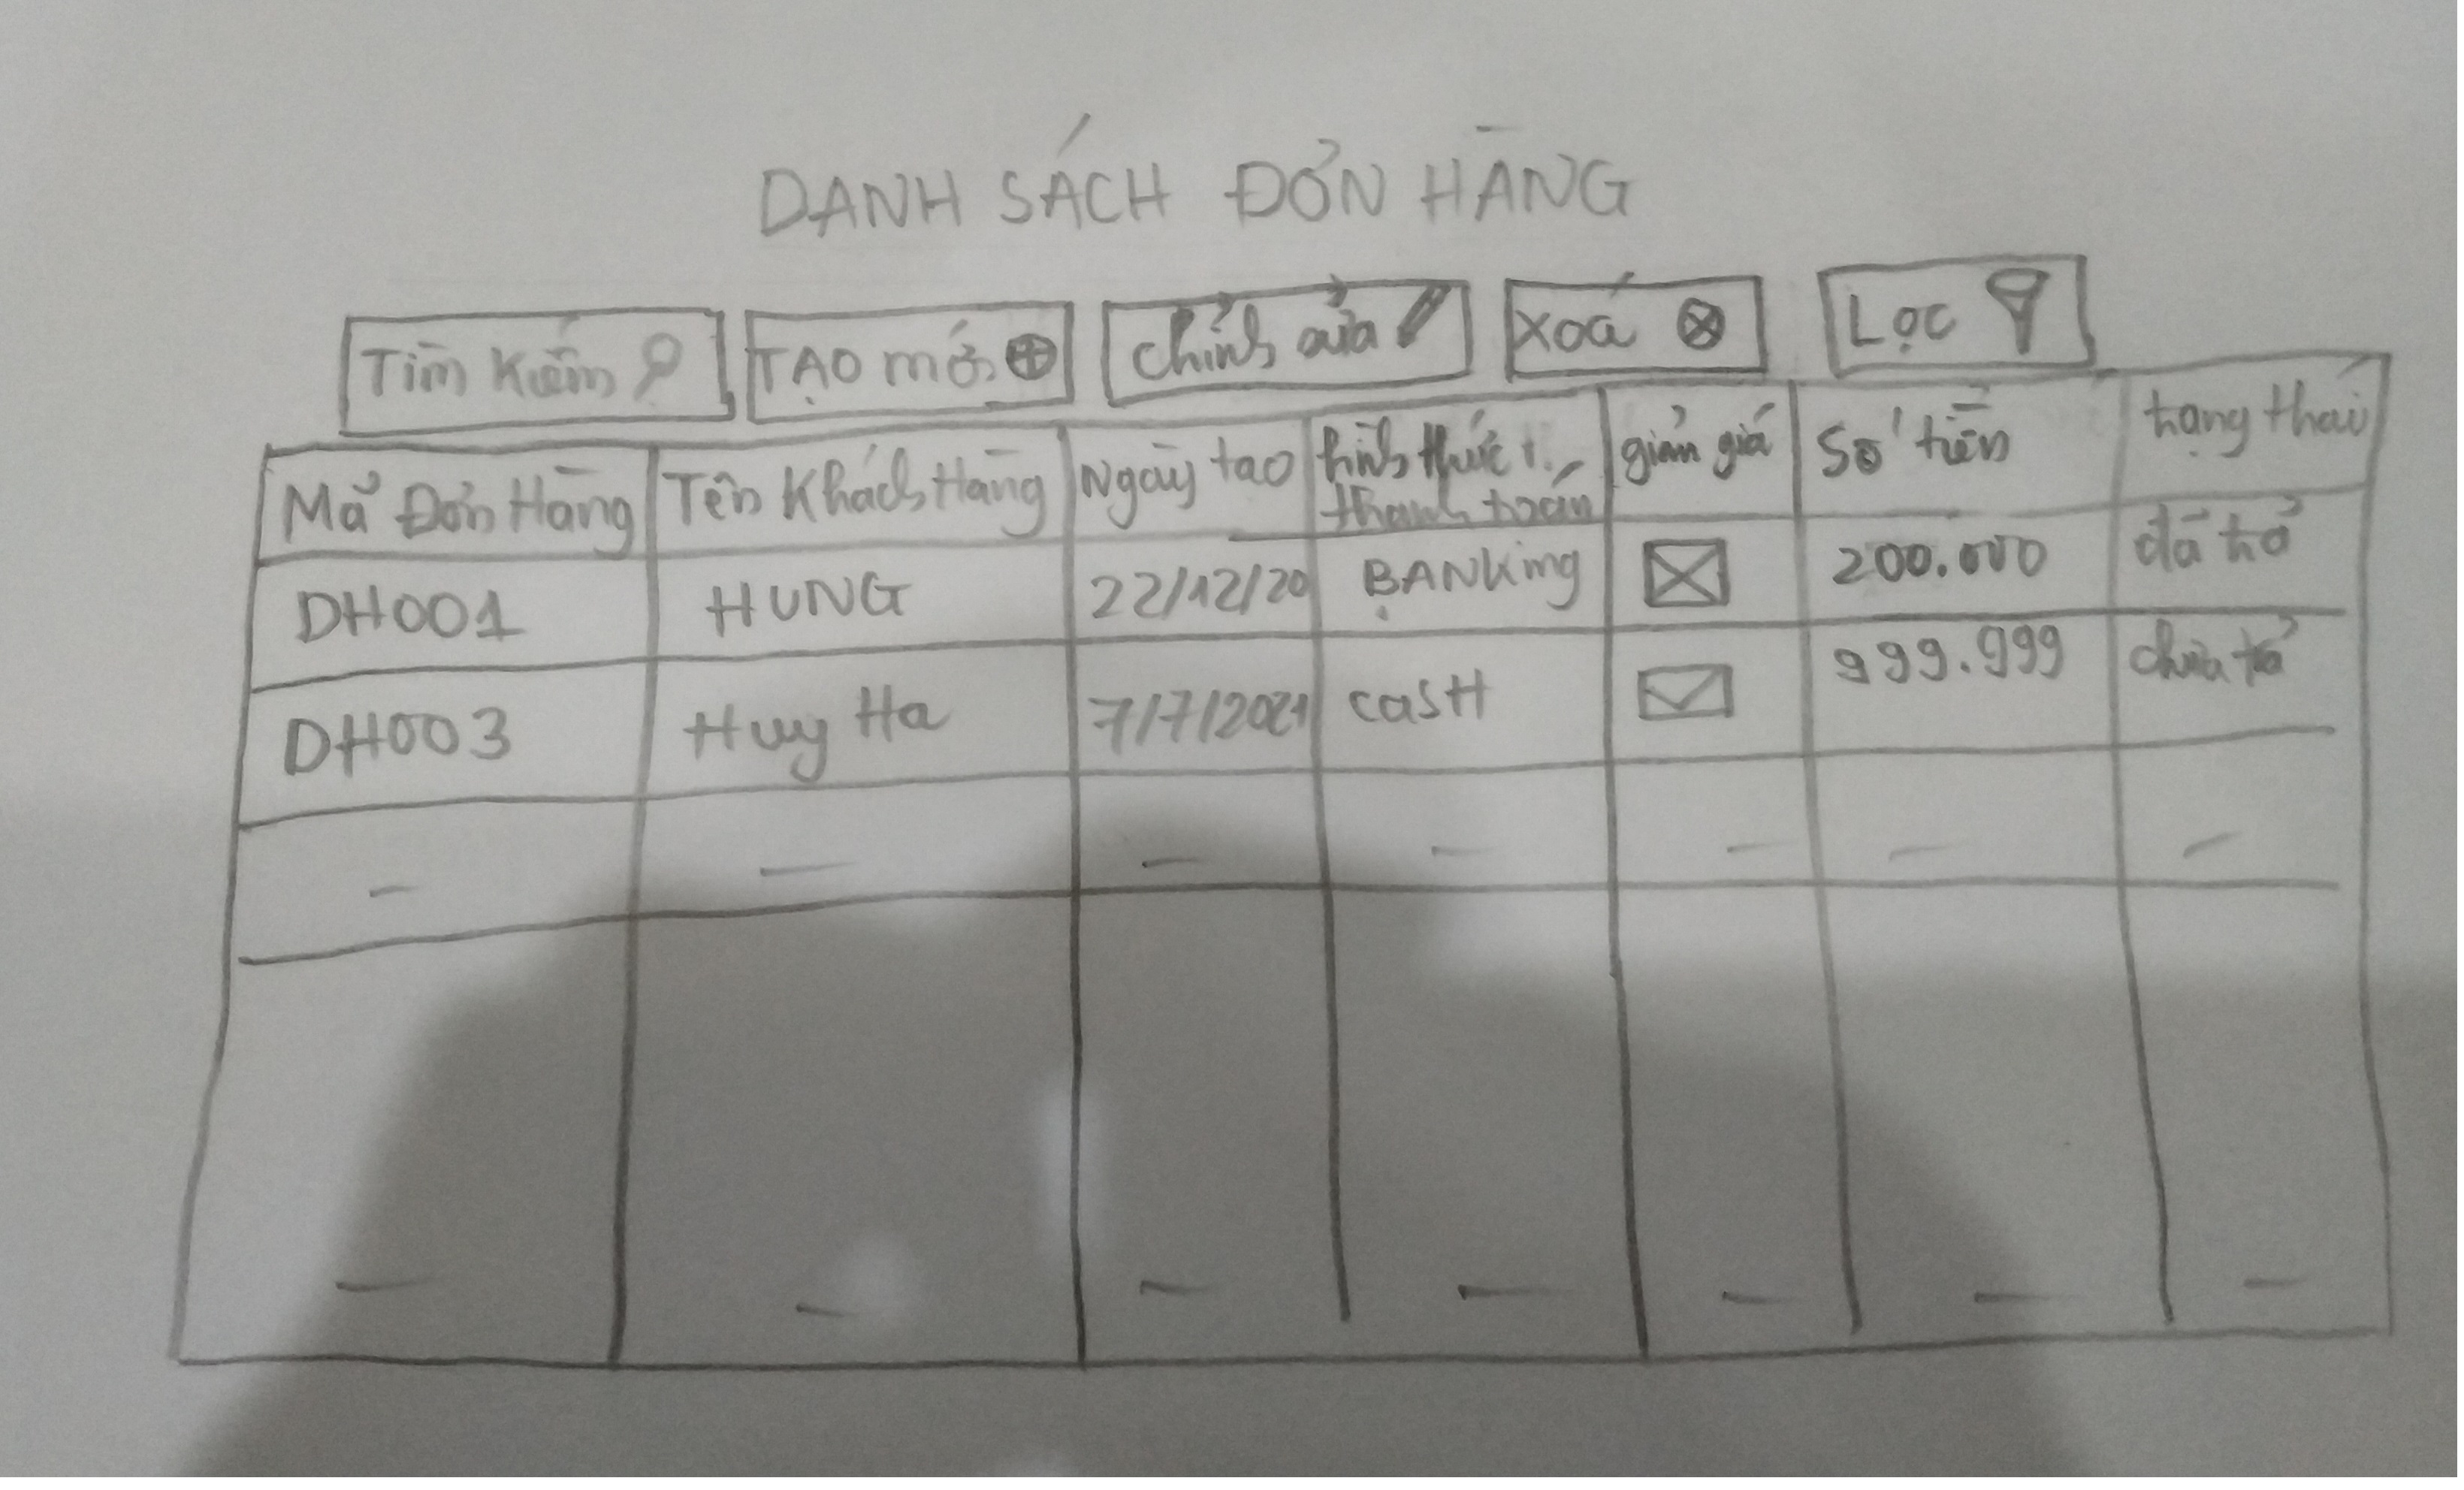 DANH SÁCH ĐƠN HÀNG
Tìm Kiếm
TẠO mới
chỉnh sửa
Xoá
Lọc
Mã Đơn Hàng
Tên Khách Hàng
Ngày tạo
hình thức
thanh toán
giảm giá
Số tiền
trạng thái
DH001
HUNG
22/12/20
BANKing
200.000
đã trả
DH003
Huy Ha
7/7/2021
casH
999.999
chưa trả